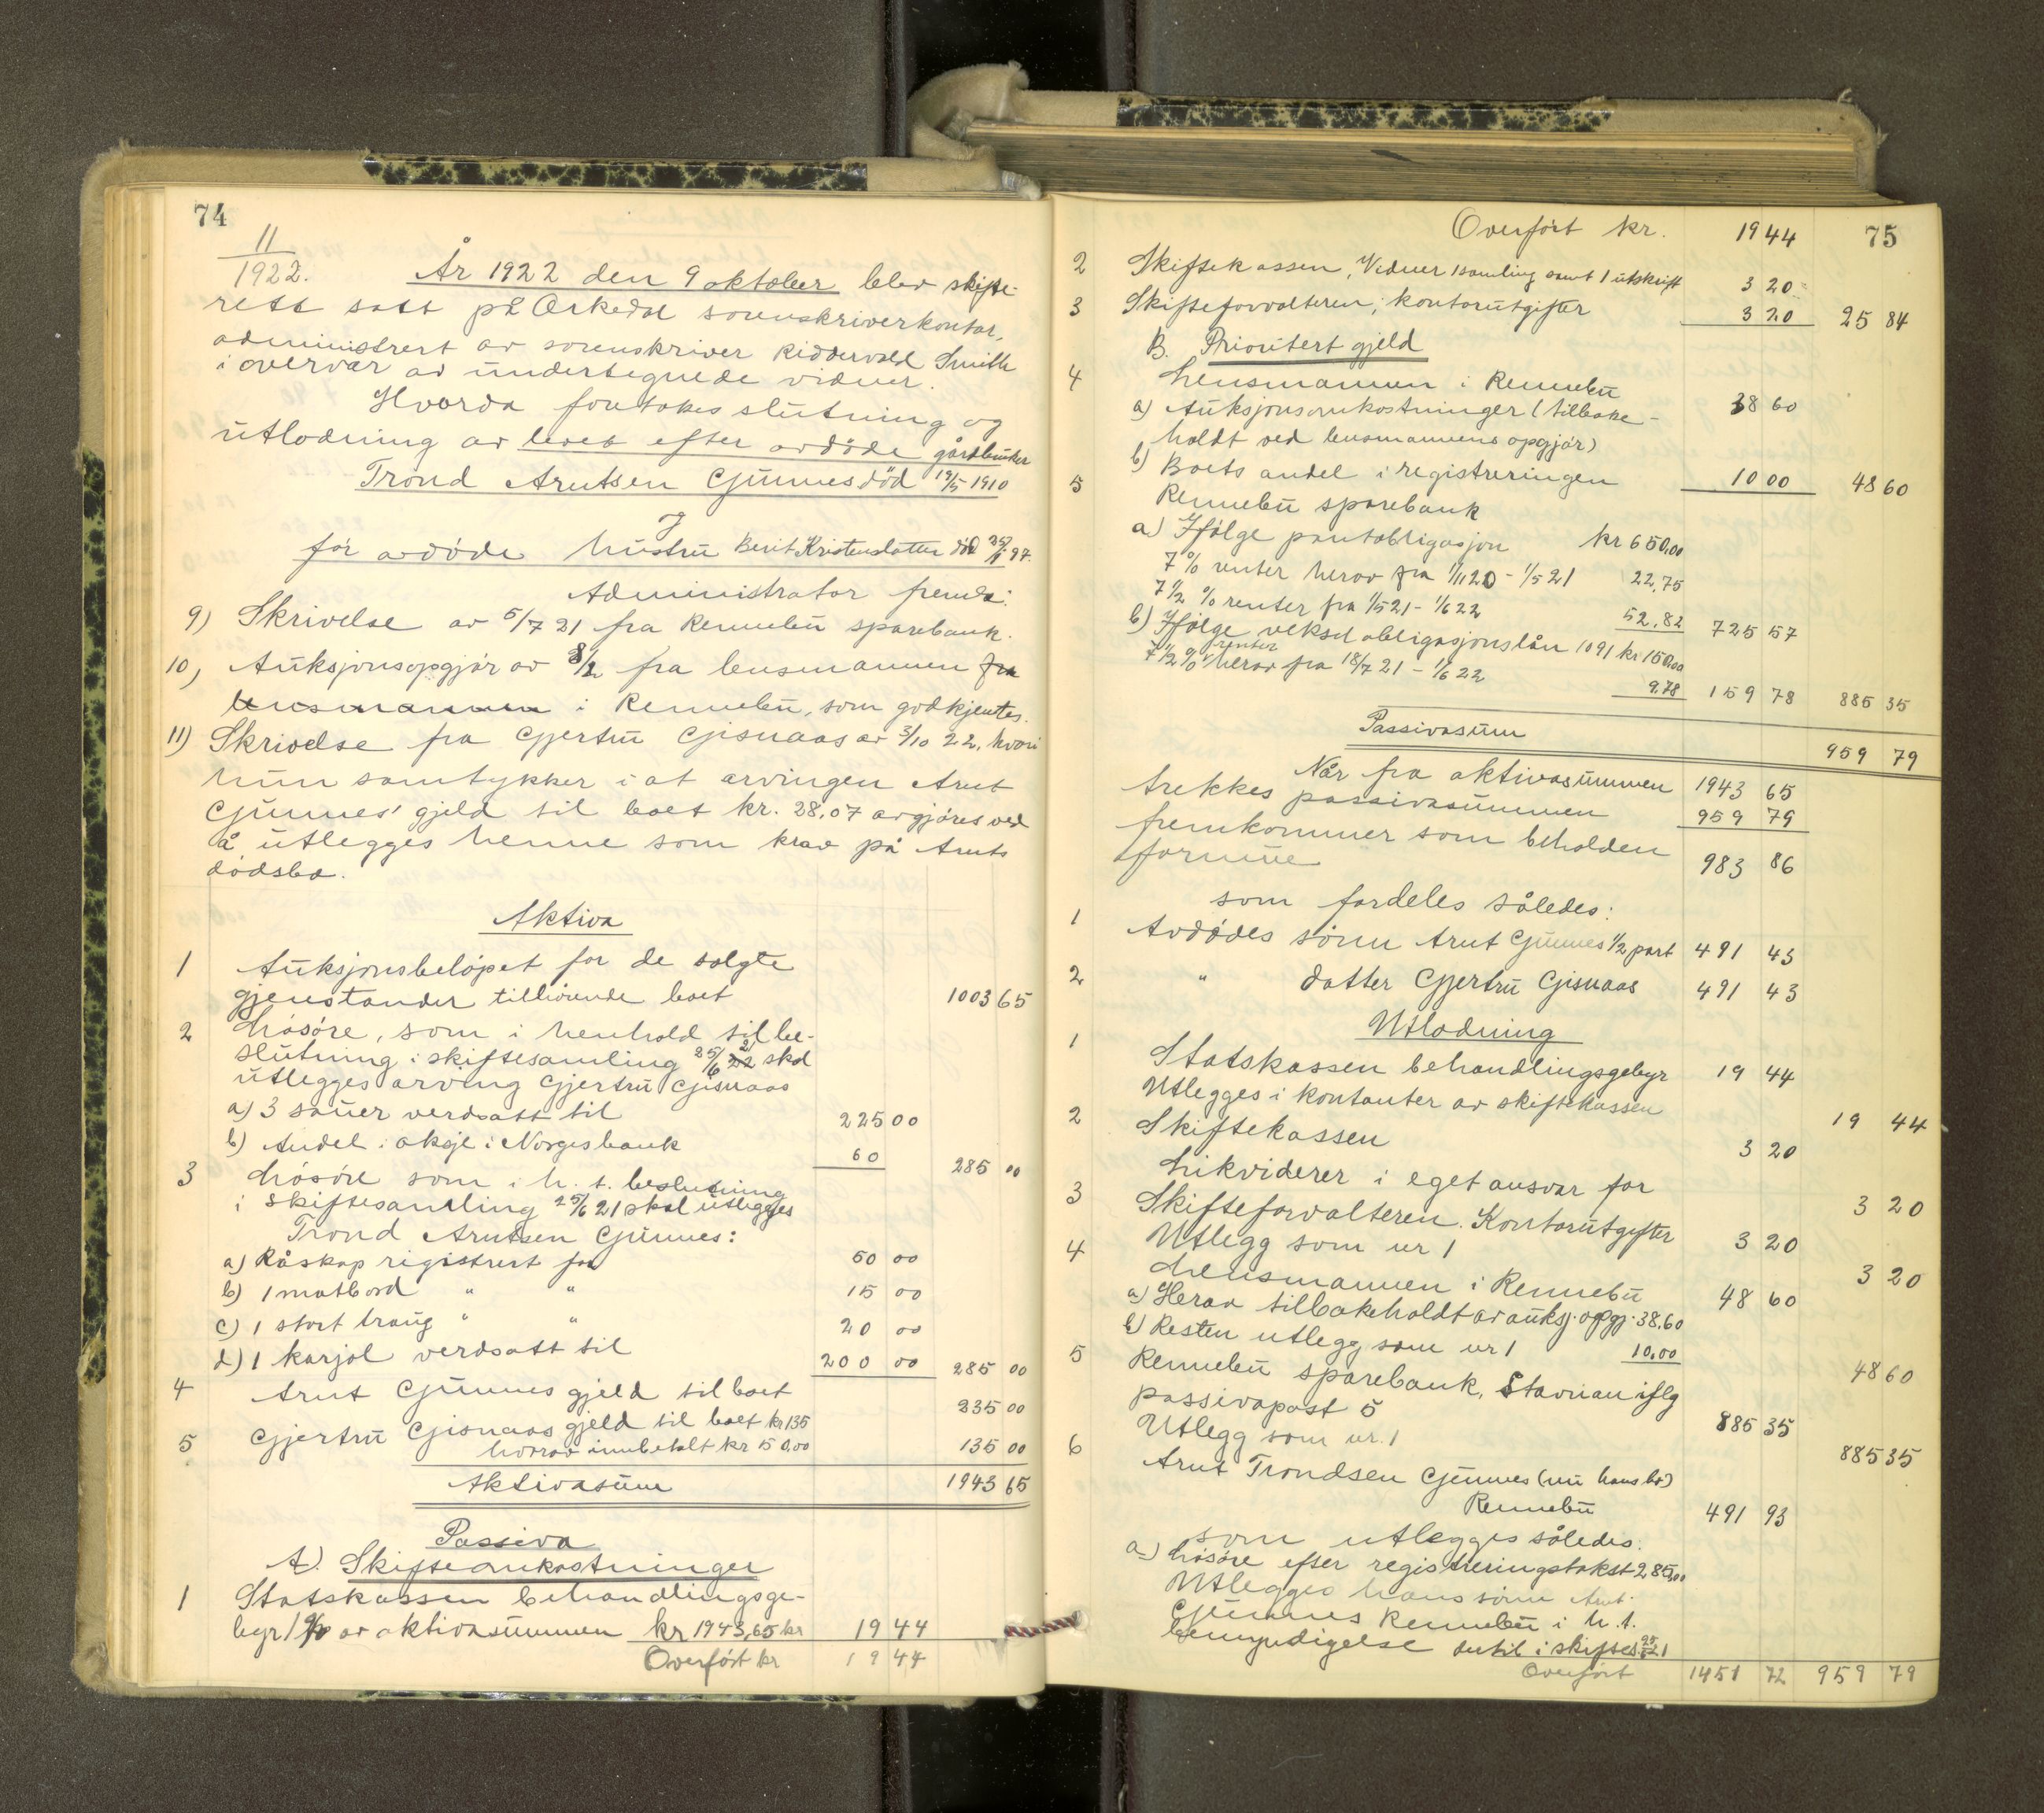 74
11
1922.
År 1922 den 9 oktober blev skifte-
rett satt på Orkedal sorenskriverkontor,
administrert av sorenskriver Riddervold Smith
i overvær av undertegnede vidner.
Hvorda foretokes slutning og
utlodning av boet efter avdøde gårdbruker
Trond Arntsen Gunnes död 19/5 1910
J
før avdöde hustru Berit Kristensdatter död 97.
Administrator fremla:
9) Skrivelse av 5/7 21 fra Rennebu sparebank.
10) Auksjonsopgjör av fra lensmannen fra
lensmannen i Rennebu, som godkjentes.
11) Skrivelse fra Gjertru Gisnaas av 3/10 22, hvori
hun samtykker i at arvingen Arnt
Gunnes' gjeld til boet kr. 28,07 avgjöres ved
å utlegges henne som krav på Arnts
dödsbo.
Aktiva
1 Auksjonsbelöpet for de solgte
gjenstander tilhörende boet 1003 65
2 Lösöre, som i henhold til be-
slutning i skiftesamling 25/6 21 skal
utlegges arving Gjertru Gisnaas
a) 3 sauer verdsatt til 225 00
b) Andel i aksje i Norges bank 60 285 00
3 Lösöre som i h. t. beslutning
i skiftesamling 25/6 21 skal utlegges
Trond Arntsen Gunnes:
a) Råskap registrert for 50 00
b) 1 matbord " " 15 00
c) 1 stort traug " " 20 00
d) 1 karjol verdsatt til 200 00 285 00
4 Arnt Gunnes gjeld til boet 235 00
5 Gjertru Gisnaas gjeld til boet kr 135
hvorav innbetalt kr 50,00 135 00
Aktivasum 1943 65
Passiva
A) Skifteomkostninger
1 Statskassen behandlingsge-
byr 1 % av aktivasummen kr 1943,65 kr 19 44
Overfört kr 19 44
Overfört kr. 19 44 75
2 Skiftekassen, Vidner 1 samling samt 1 utskrift 3 20
3 Skifteforvalteren, kontorutgifter 3 20 25 84
B. Prioritert gjeld
4 Lensmannen i Rennebu
a) Auksjonsomkostninger (tilbake- 38 60
holdt ved lensmannens opgjör)
b) Boets andel i registreringen 10 00 48 60
5 Rennebu sparebank
a) Ifölge pantobligasjon kr 650,00
7 % renter herav fra 1/11 20 - 1/5 21 22,75
7 1/2 % renter fra 1/5 21 - 1/6 22 52,82 725 57
b) Ifölge vekselobligasjonslån 1091 kr 150,00
7 1/2 % renter herav fra 18/7 21 - 1/6 22 9,78 159 78 885 35
Passivasum 959 79
Når fra aktivasummen 1943 65
trekkes passivasummen 959 79
fremkommer som beholden
formue 983 86
som fordeles således:
1 Avdödes sönn Arnt Gunnes 1/2 part 491 43
2 " datter Gjertru Gisnaas 491 43
Utlodning
1 Statskassen behandlingsgebyr 19 44
Utlegges i kontanter av skiftekassen 19 44
2 Skiftekassen 3 20
Likviderer i eget ansvar for 3 20
3 Skifteforvalteren. Kontorutgifter 3 20
Utlegg som nr 1 3 20
4 Lensmannen i Rennebu 48 60
a) Herav tilbakeholdt av auksj. opgj. 38,60
b) Resten utlegg som nr 1 10,00 48 60
5 Rennebu sparebank, Stavnan iflg
passivapost 5 885 35
Utlegg som nr. 1 885 35
6 Arnt Trondsen Gunnes (nu hans bo)
Rennebu 491 93
som utlegges således:
a) Lösöre efter registreringstakst 285,00
Utlegges hans sönn Arnt
Gunnes Rennebu i h. t.
bemyndigelse dertil i skiftes. 21
Overfört 1451 72 959 79